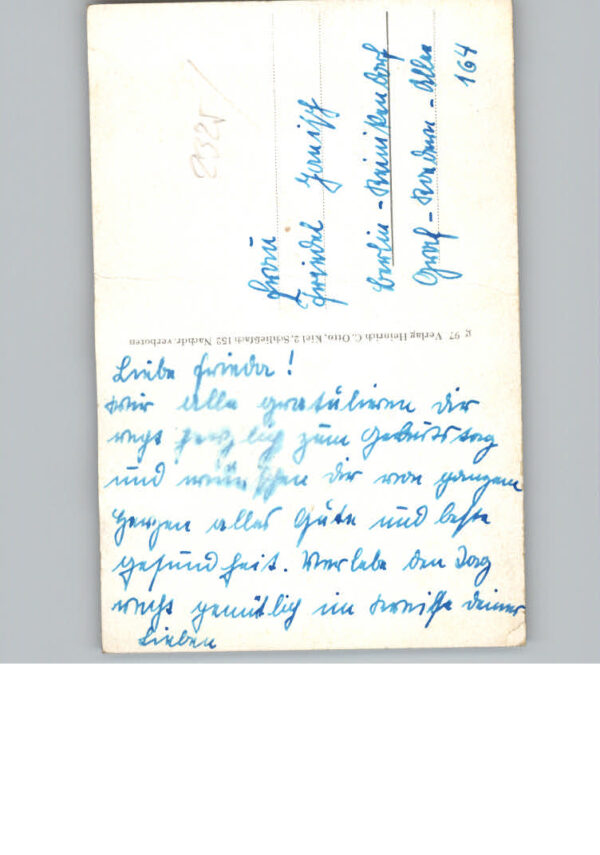 Frau
Friedel Janisch
Berlin-Reinikendorf
Graf-Roedern-Allee
164
g 97 Verlag Heinrich C. Otto, Kiel 2, Schließfach 152 Nachdr. verboten
Liebe Frieda!
Wir alle gratulieren dir
recht herzlich zum Geburtstag
und wünschen dir von ganzem
Herzen alles Gute und beste
gesundheit. Verlebe den Tag
recht gemütlich im Kreise deiner
Lieben
2325/